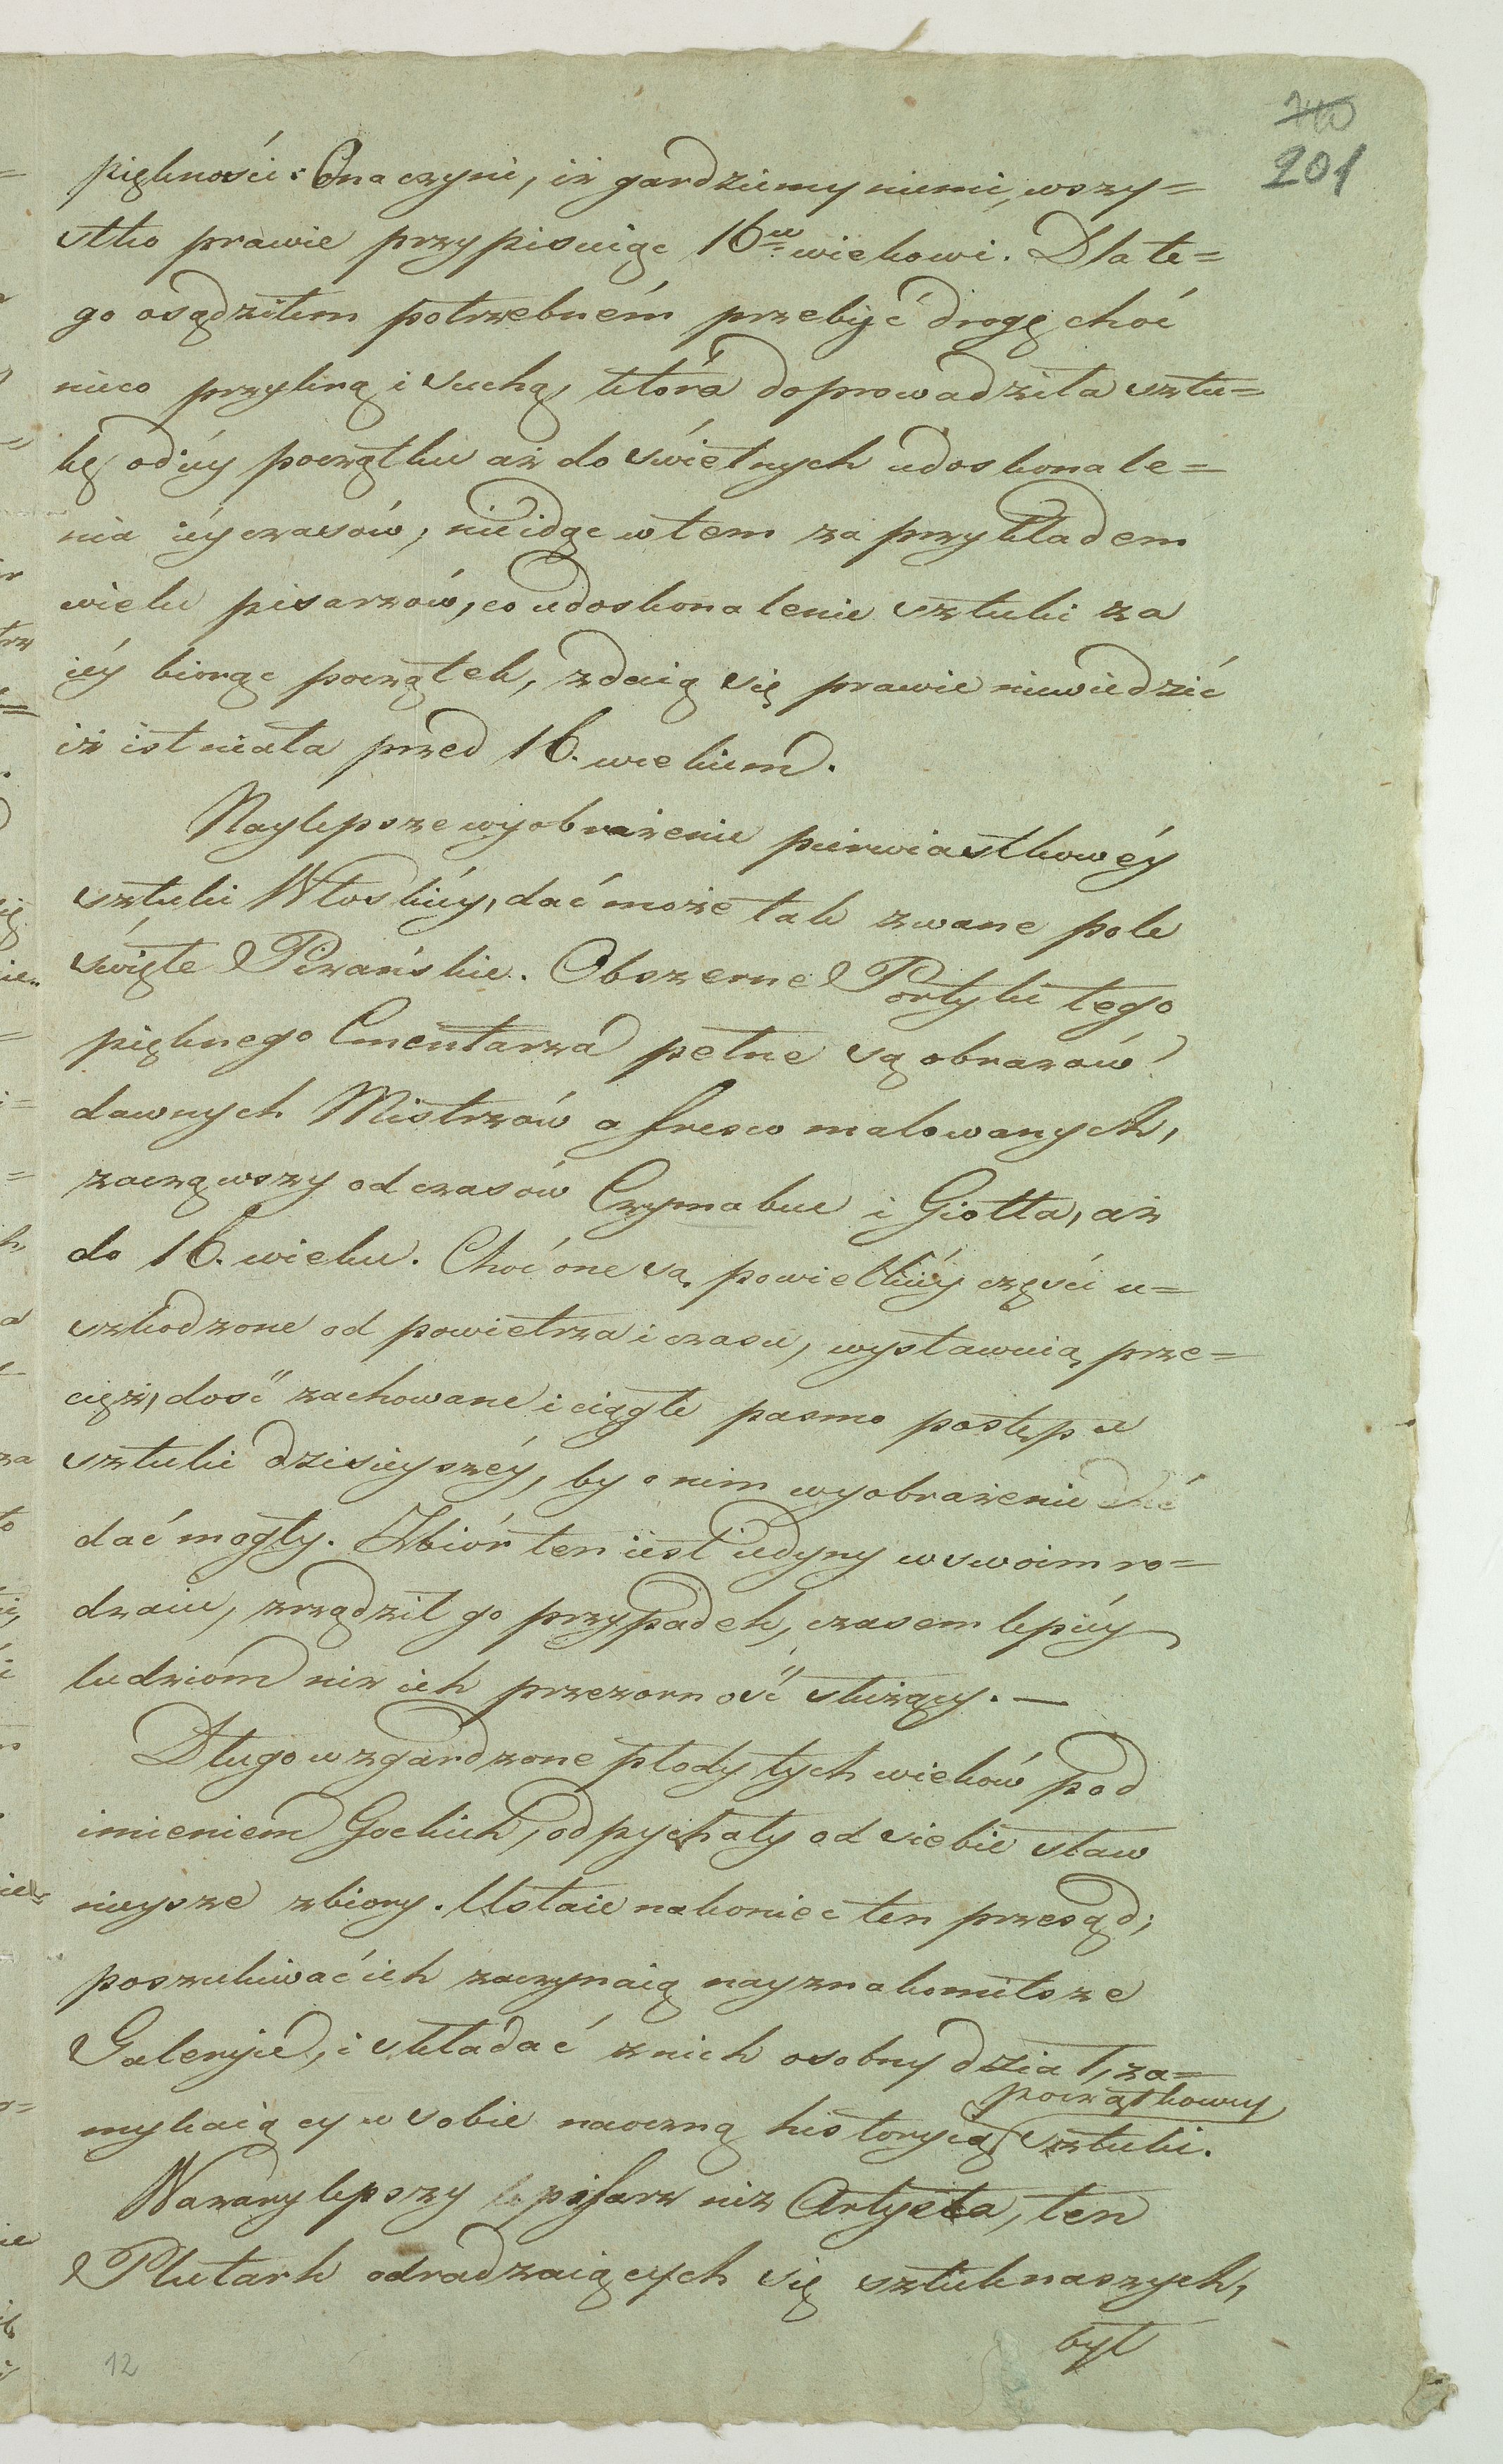 201
piękności: Ona czyni, iż gardziemy niemi, wszy=
stko prawie przypisuiąc 16u wiekowi. Dla te=
go osądziłem potrzebném przebyć drogę choć
nieco przykrą i suchą, która doprowadziła sztu=
kę od iéy początku aż do świetnych udoskonale=
nia iéy czasów, nie idąc w tem za przykładem
wielu pisarzów, co udoskonalenie sztuki za
iéy biorąc początek, zdaią się prawie niewiedzić
iż istniała przed 16. wiekiem.
Naylepsze wyobrażenie pierwiastkowéy
sztuki Włoskiéy, dać może tak zwane pole
święte Pizańskie. Obszerne Portyki tego
pięknego Cmentarza pełne są obrazów
dawnych Mistrzów a fresco malowanych,
zacząwszy od czasów Czymabue i Giotta, aż
do 16. wieku. Choć one są, powielkiéy części u=
szkodzone od powietrza i czasu, wystawuią prze=
cięż, dość zachowane i ciągłe pasmo postępu
sztuki dzisieyszéy, by o nim wyobrażenie
dać mogły. Zbiór ten iest iedyny w swoim ro=
dzaiu, zrządził go przypadek, czasem lepiéy
ludzióm niż ich przezorność służący. —
Długo wzgardzone płody tych wieków pod
imieniem Gockich, odpychały od siebie sław
nieysze zbiory. Ustaie nakoniec ten przesąd;
poszukiwać ich zaczynaią nayznakomitsze
Galeryie, i składać z nich osobny dział, za=
mykaiący w sobie naoczną historyią początkowéy sztuki.
Wazary lepszy pisarz niż Artysta, ten
Plutark odradzaiących się sztuk naszych,
był
12